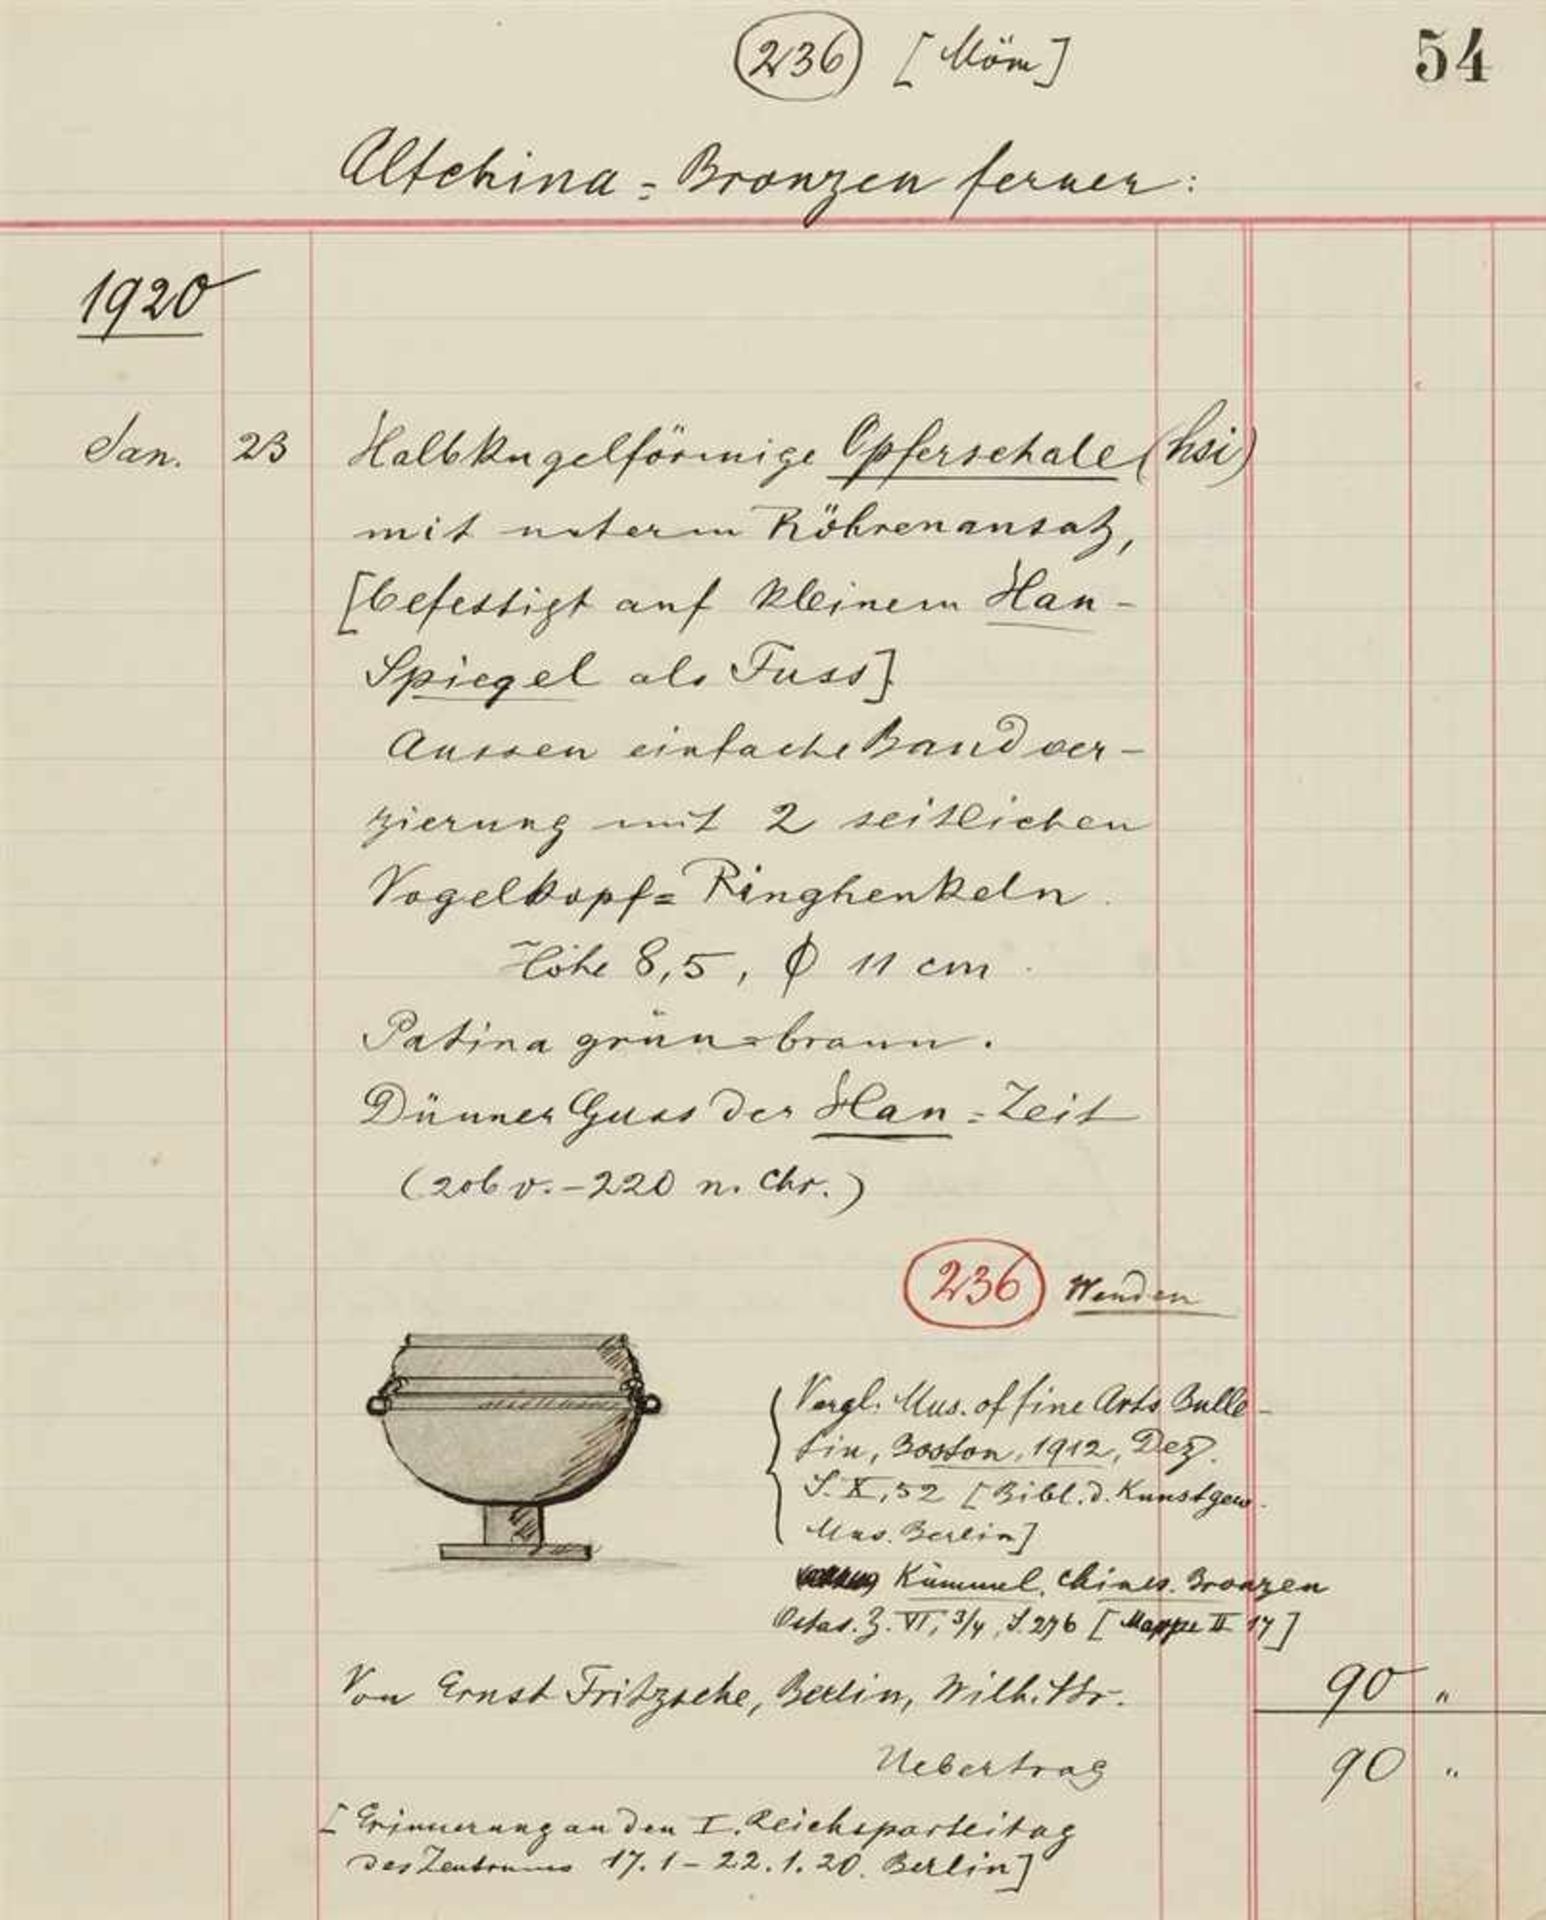 236 [Möm] 54
Altchina = Bronzen ferner:
1920
Jan. 23 Halbkugelförmige Opferschale (hsi)
mit unterm Röhrenansatz,
[befestigt auf kleinem Han-
Spiegel als Fuss]
Aussen einfache Bandver-
zierung mit 2 seitlichen
Vogelkopf= Ringhenkeln.
Höhe 8,5, ϕ 11 cm.
Patina grün=braun.
Dünner Guss der Han=Zeit
(206 v. – 220 n. Chr.)
236 Wenden
Vergl. Mus. of fine Arts Bulle-
tin, Boston, 1912, Dez.
S. X, 52 [Bibl. d. Kunstgew.
Mus. Berlin]
Kümmel, Chines. Bronzen
Ostas. Z. VI, 3/4, S. 276 [Mappe II 17]
Von Ernst Fritzsche, Berlin, Wilh. Str. 90 "
Uebertrag 90 "
[Erinnerung an den I. Reichsparteitag
des Zentrums 17.1 – 22.1.20. Berlin]